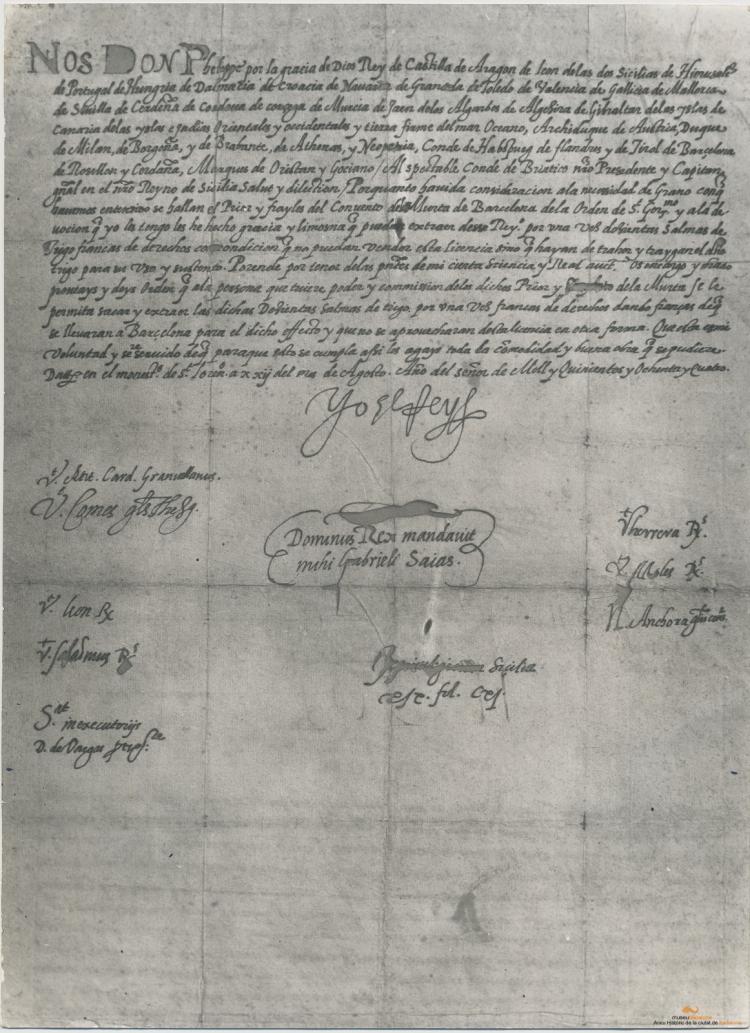 NOS DON Phelippe por la gracia de Dios Rey de Castilla de Aragon de Leon de las dos Sicilias de Hierusalē
de Portugal de Hungria de Dalmatia de Croacia de Navarra de Granada de Toledo de Valencia de Gallicia de Mallorca
de Sevilla de Cerdeña de Cordova de Corcega de Murcia de Jaen delos Algarbes de Algezira de Gibraltar delas yslas de
Canaria delas yslas e Indias Orientales y occidentales y tierra firme del mar Oceano, Archiduque de Austria, Duque
de Milan, de Borgoña, y de Brabante, de Athenas, y Neopatria, Conde de Habspurg de flandres y de Tirol de Barcelona
de Rosellon y Cerdaña, Marques de Oristan y Gociano / Al spectable Conde de Briatico nr̃o Presidente y Capitan
gñal en el nr̃o Reyno de Sicilia Salut y dilection / Porquanto havida consideracion ala necesidad de Grano conq̃
havemos entendido se hallan el Prior y frayles del Convento dela Murta de Barcelona dela Orden de St. Gerᵐᵒ y ala de
uocion q̃ yo la tengo les he hecho gracia y limosna q̃ puedan extraer desse Reyᵒ por vna vez dozientas Salmas de
Trigo francas de derechos con condicion q̃ no puedan vender esta licencia sino q̃ hayan de traher y traygan el dho
trigo para su vso y sustento. Porende por tenor delas pñtes de mi cierta Sciencia y Real auctᵈ. os encargo y mando
proveays y deys Orden q̃ ala persona que tuviere poder y commission delos dichos Prior y dela Murta se le
permita sacar y extraer las dichas Dozientas salmas de trigo, por vna vez francas de derechos dando fianças deq̃
se llevaran a Barcelona para el dicho effecto y que no se aprovecharan desta licencia en otra forma. Que esta es mi
voluntad y servido deq̃ paraque esto se cumpla assi les agays toda la comodidad y buena obra q̃ se pudiere.
Datt. en el monestᵒ. de St. Lorenᵒ. a xxij del mes de Agosto. Año del señor de Mill y Quinientos y Ochenta y Quatro.
Yo el Rey
Vt. Card. Granvellanus.
Vt. Comes gñls Thesᵍ.
Dominus Rex mandavit
mihi Gabrieli Saias.
Vt. herrera Rˢ.
Vt. Moles Rˢ.
Vt. leon R
Vt. Rˢ
Sicilia